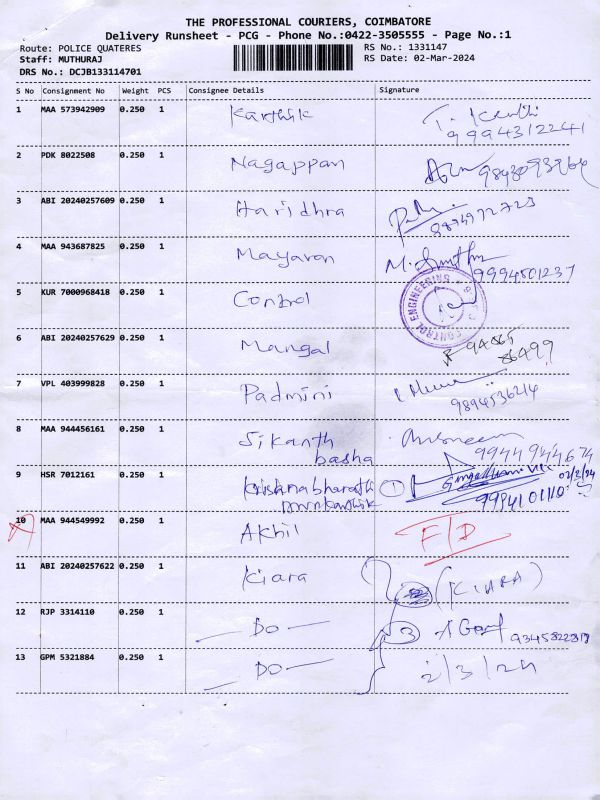 THE PROFESSIONAL COURIERS, COIMBATORE
Delivery Runsheet - PCG - Phone No.:0422-3505555 - Page No.:1
Route: POLICE QUATERES RS No.: 1331147
Staff: MUTHURAJ RS Date: 02-Mar-2024
DRS No.: DCJB133114701
S No Consignment No Weight PCS Consignee Details Signature
1 MAA 573942909 0.250 1 Karthik
9994312241
2 PDK 8022508 0.250 1 Nagappan
3 ABI 20240257609 0.250 1 Haridhra
8874972723
4 MAA 943687825 0.250 1 Mayavan
9994501237
5 KUR 7000968418 0.250 1 Control
CONTROL ENGINEERING
6 ABI 20240257629 0.250 1 Mangal 94865
86499
7 VPL 403999828 0.250 1 Padmini
9894536214
8 MAA 944456161 0.250 1 Sikanth
basha 9944944674
9 HSR 7012161 0.250 1 Krishna bharathi 1
02/3/24
10 MAA 944549992 0.250 1 Akhil F/D
11 ABI 20240257622 0.250 1 Kiara (KIARA)
12 RJP 3314110 0.250 1 — DO — 3
13 GPM 5321884 0.250 1 — DO — 2/3/24